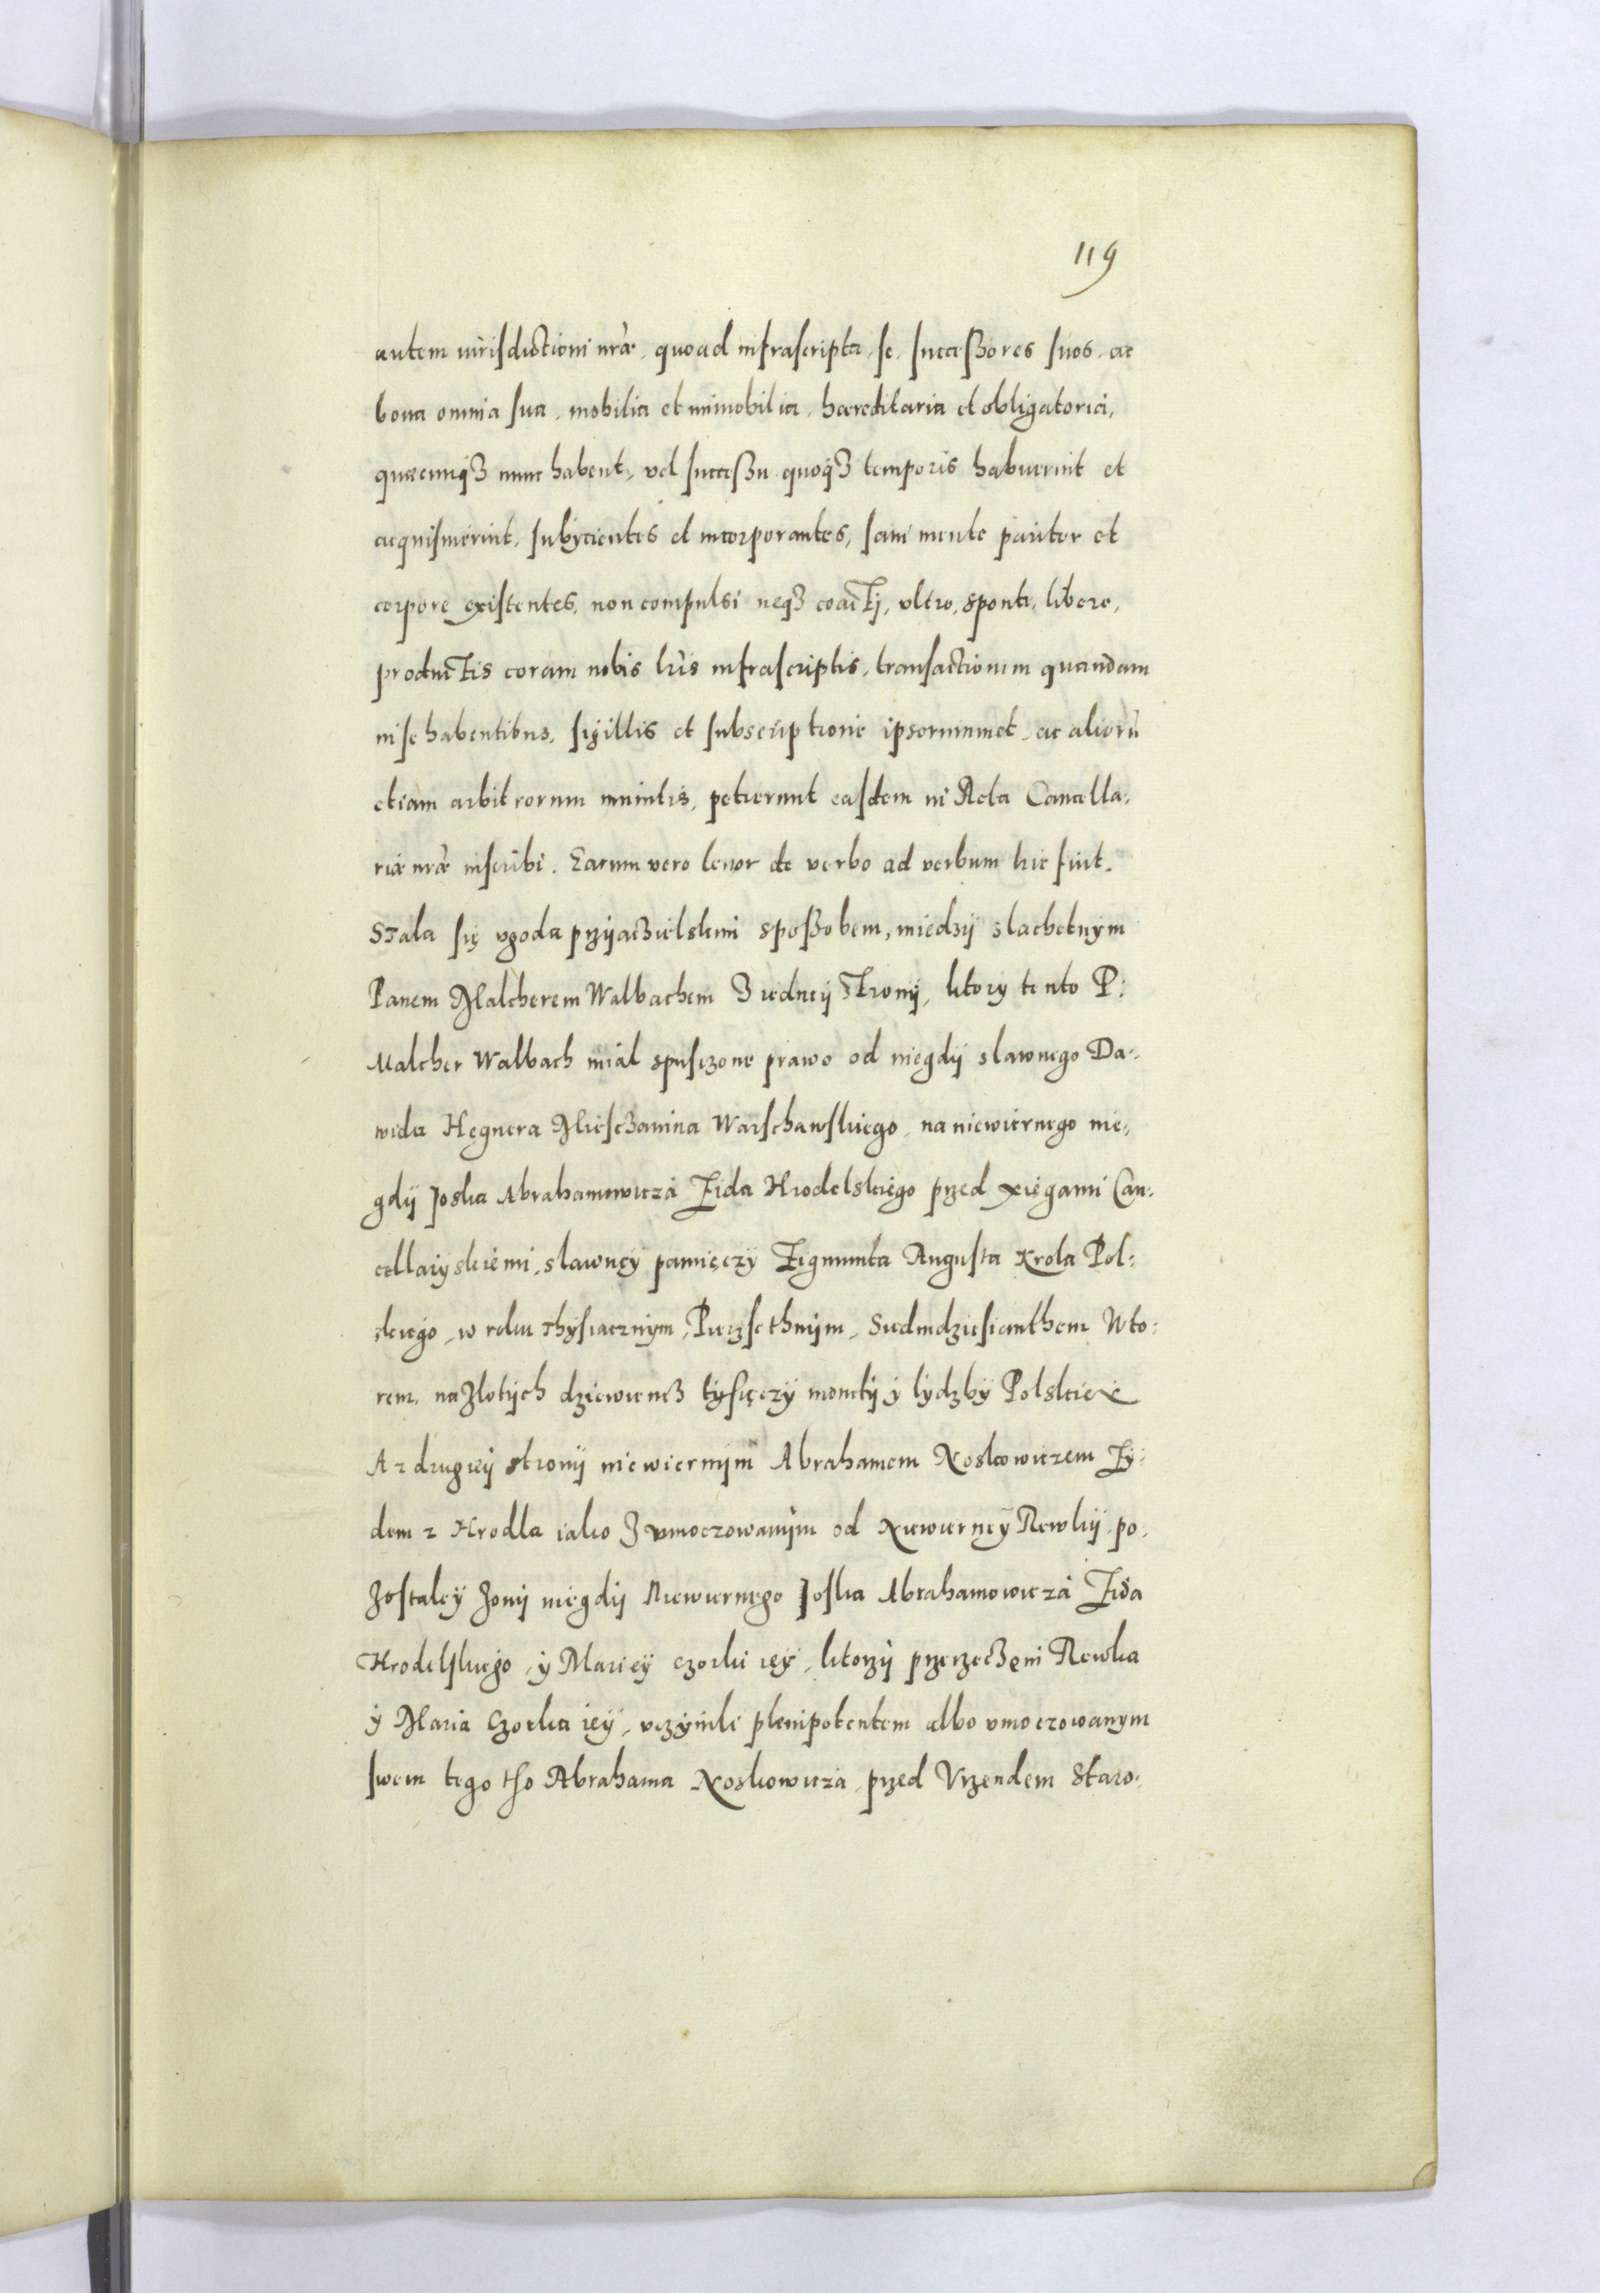 119
autem iurisdictioni nr̃æ, quoad infrascripta, se, successores suos, ac
bona omnia sua, mobilia et immobilia, hæreditaria et obligatoria,
quæcunqȝ nunc habent, vel successu quoqȝ temporis habuerint et
acquisiuerint, subÿcientes et incorporantes, sani mente pariter et
corpore existentes, non compulsi neqȝ coactj, vltro, sponte, libere,
productis coram nobis lr̃is infrascriptis, transactionem quandam
in se habentibus, sigillis et subscriptione ipsorummet, ac aliorũ
etiam arbitrorum munitis, petierunt easdem in Acta Cancella-
riæ nr̃æ inscribi. Earum vero tenor de verbo ad verbum hic fuit.
Stala się vgoda przijaczielskim sposzobem, miedzij slachetnym
Panem Malcherem Walbachem z iedneij stronij, ktory tento P:
Malcher Walbach mial spusczone prawo od niegdij slawnego Da-
wida Hegnera Miesczanina Warschawskiego, na niewiernego nie-
gdij Joska Abrahamowicza Zida Hrodelskiego przed xięgami Can-
cellariyskiemi, slawney pamięczy Zigmunta Augusta Krola Pol-
skiego, w roku Thysiacznym, Pieczsethnijm, Siedmdziesianthem Wto-
rem, na zlotijch dziewiencz tysięczy monetij ÿ lydzby Polskieÿ
A z drugieij stronij niewiernijm Abrahamem Noskowiczem Zy-
dem z Hrodla iako z vmoczowanijm od Niewierneÿ Rewkij, po-
zostaleÿ zonij niegdij Niewiernego Joska Abrahamowicza Zida
Hrodelskiego, ÿ Marieÿ czorki ieÿ, ktorzij przerzeczęni Rewka
ÿ Maria Czorka ieÿ, vczÿnili plenipotentem albo vmoczowanym
swem tego tho Abrahama Noskowicza, przed Vrzendem Staro-